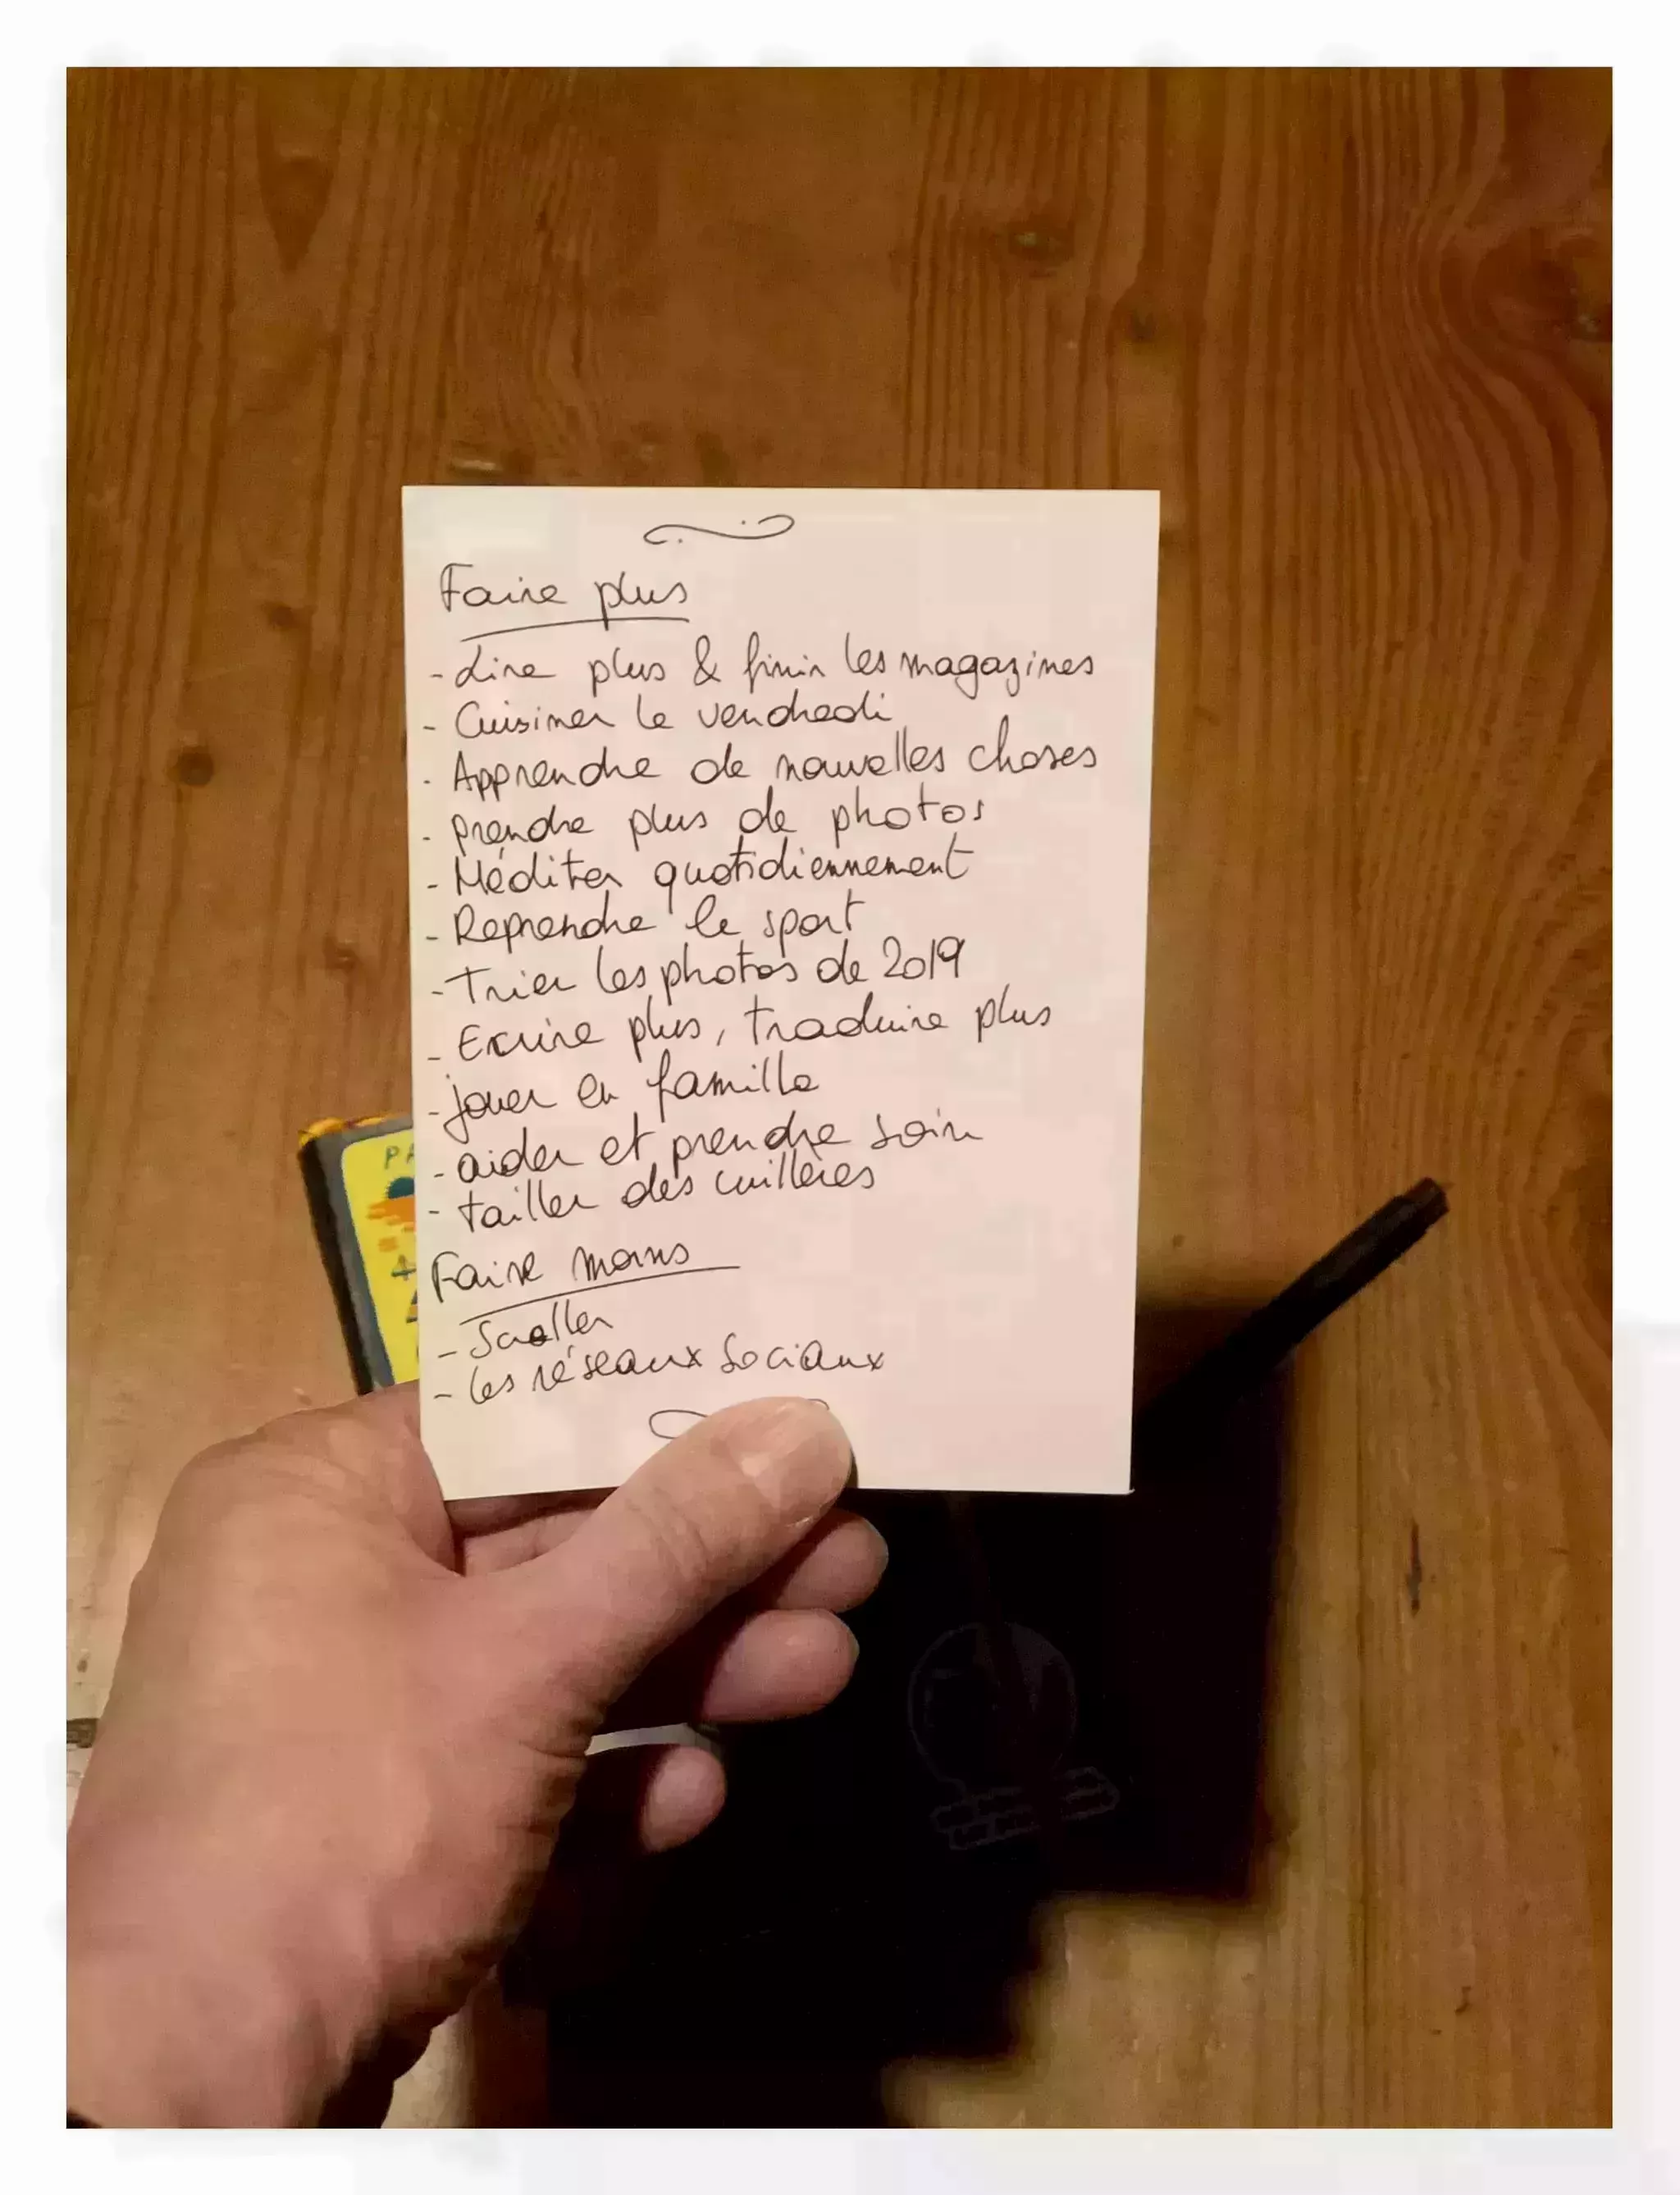 Faire plus
- Lire plus & finir les magazines
- Cuisiner le vendredi
- Apprendre de nouvelles choses
- prendre plus de photos
- Méditer quotidiennement
- Reprendre le sport
- Trier les photos de 2019
- Ecrire plus, traduire plus
- jouer en famille
- aider et prendre soin
- tailler des cuillères
Faire moins
- Scroller
- les réseaux sociaux